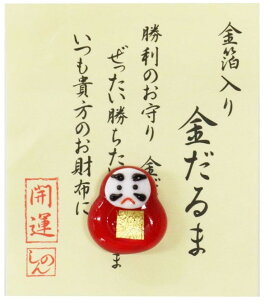 金箔入り
金だるま
勝利のお守り 金
ぜったい勝ちた ま
いつも貴方のお財布に
開運
しのん